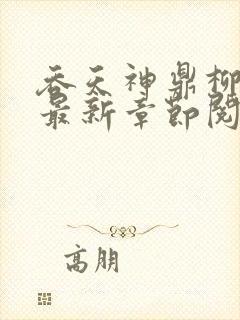 吞天神鼎柳
最新章节阅
高朋